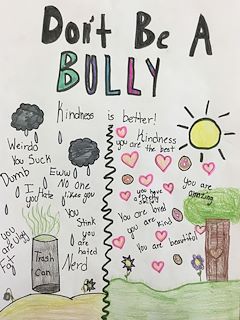 Don't Be A
BULLY
Kindness is better!
Weirdo
You Suck
Dumb
Eww
I hate you
No one likes you
You Stink
you are hated
you are ugly
Fat
Nerd
Trash Can
Kindness
you are the best
you have a Pretty
You are loved
you are kind
You are beautiful
You are amazing